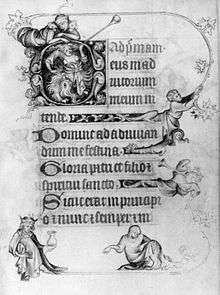 Ad primam
Deus in ad
iutorium
meum in
tende.
Domine ad adiuuan
dum me festina.
Gloria patri et filio et
spiritui sancto.
Sicut erat in principi
o et nunc et semper in